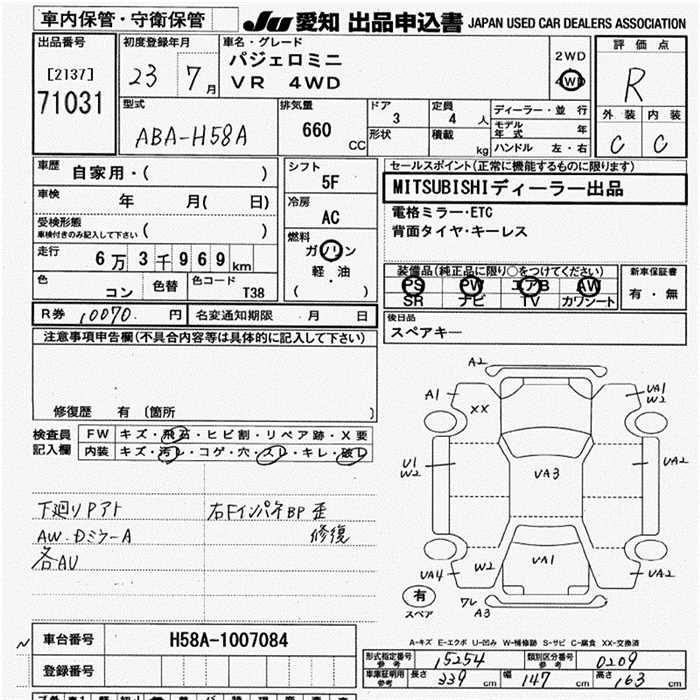 車内保管・守衛保管
JU 愛知 出品申込書 JAPAN USED CAR DEALERS ASSOCIATION
出品番号
[2137]
71031
初度登録年月
23 7月
車名・グレード
パジェロミニ
VR 4WD
2WD
4WD
評価点
R
外装 内装
C C
型式
ABA-H58A
排気量
660
CC
ドア
3
形状
定員
4人
積載
kg
ディーラー・並行
モデル年式 年
ハンドル 左・右
車歴
自家用・( )
車検
年 月( 日)
受検形態
車検付きのみ記入して下さい ( )
走行
6万3千969km
色
コン
色替
色コード
T38
シフト
5F
冷房
AC
燃料
ガソリン
軽・油
( )
セールスポイント(正常に機能するものに限ります)
MITSUBISHIディーラー出品
電格ミラー・ETC
背面タイヤ・キーレス
装備品(純正品に限り○をつけてください)
PS PW エアB AW
SR ナビ TV カワシート
新車保証書
有・無
R券 10070円
名変通知期限 月 日
後日品
スペアキー
注意事項申告欄(不具合内容等は具体的に記入して下さい)
修復歴 有 〔箇所 〕
検査員記入欄
FW キズ・飛石・ヒビ割・リペア跡・X要
内装 キズ・汚レ・コゲ・穴・スレ・キレ・破レ
下廻りPアト
AW.Dミラ-A
各AU
右FインパネBP歪
修復
A2
A1
XX
UA1
W2
U1
W2
UA3
UA2
UA4
W2
UA1
UA2
ワレ
A3
有
スペア
A-キズ E-エクボ U-凹み W-補修跡 S-サビ C-腐食 XX-交換済
車台番号
H58A-1007084
登録番号
型式指定番号 参考 15254
類別区分番号 参考 0209
車庫証明用参考 長さ 339cm 幅 147cm 高さ 163cm